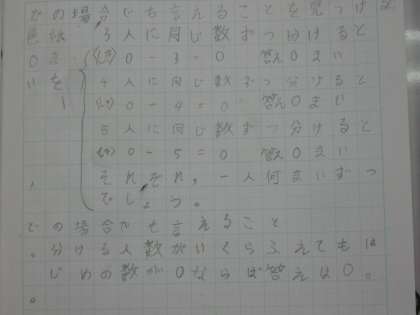 どの場合でも言えることを見つけよ
色紙 3人に同じ数ずつ分けると
0ま (式) 0-3=0 答え0まい
いを 4人に同じ数ずつ分けると
(式) 0-4=0 答え0まい
5人に同じ数ずつ分けると
(式) 0-5=0 答え0まい
それぞれ、一人何まいずつ
でしょう。
どの場合でも言えること
。分ける人数がいくらふえてもは
じめの数が0ならば答えは0。